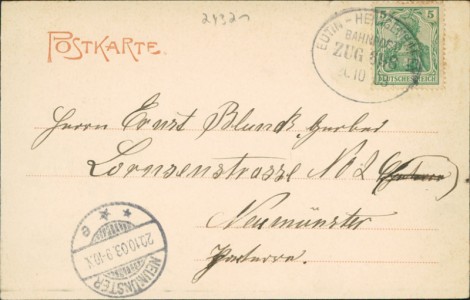 2432
POSTKARTE.
EUTIN - 
BAHNPOST
ZUG
5
DEUTSCHES REICH
Herrn Ernst Blunck, Gerber
Lornsenstrasse No 2
Neumünster
Parterre.
NEUMÜNSTER
22.10.03.9-10.V.
* * e